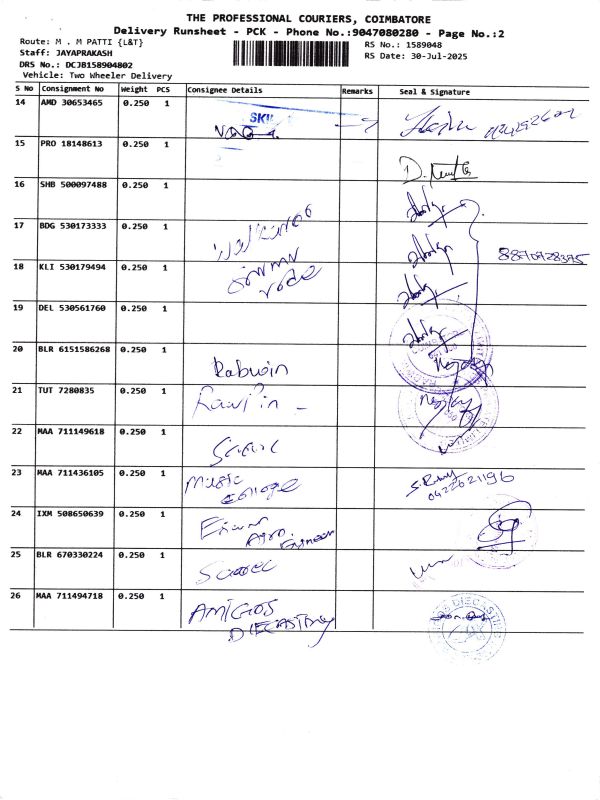 THE PROFESSIONAL COURIERS, COIMBATORE
Delivery Runsheet - PCK - Phone No.:9047080280 - Page No.:2
Route: M . M PATTI {L&T}
RS No.: 1589048
Staff: JAYAPRAKASH
RS Date: 30-Jul-2025
DRS No.: DCJB158904802
Vehicle: Two Wheeler Delivery
S No Consignment No Weight PCS Consignee Details Remarks Seal & Signature
14 AMD 30653465 0.250 1 SKI
15 PRO 18148613 0.250 1
16 SHB 500097488 0.250 1
17 BDG 530173333 0.250 1
18 KLI 530179494 0.250 1 8870728375
19 DEL 530561760 0.250 1
20 BLR 6151586268 0.250 1 Rabwin
21 TUT 7280835 0.250 1
22 MAA 711149618 0.250 1
23 MAA 711436105 0.250 1 music college
24 IXM 508650639 0.250 1 Agro
25 BLR 670330224 0.250 1
26 MAA 711494718 0.250 1 AMIGOS
DIECASTING